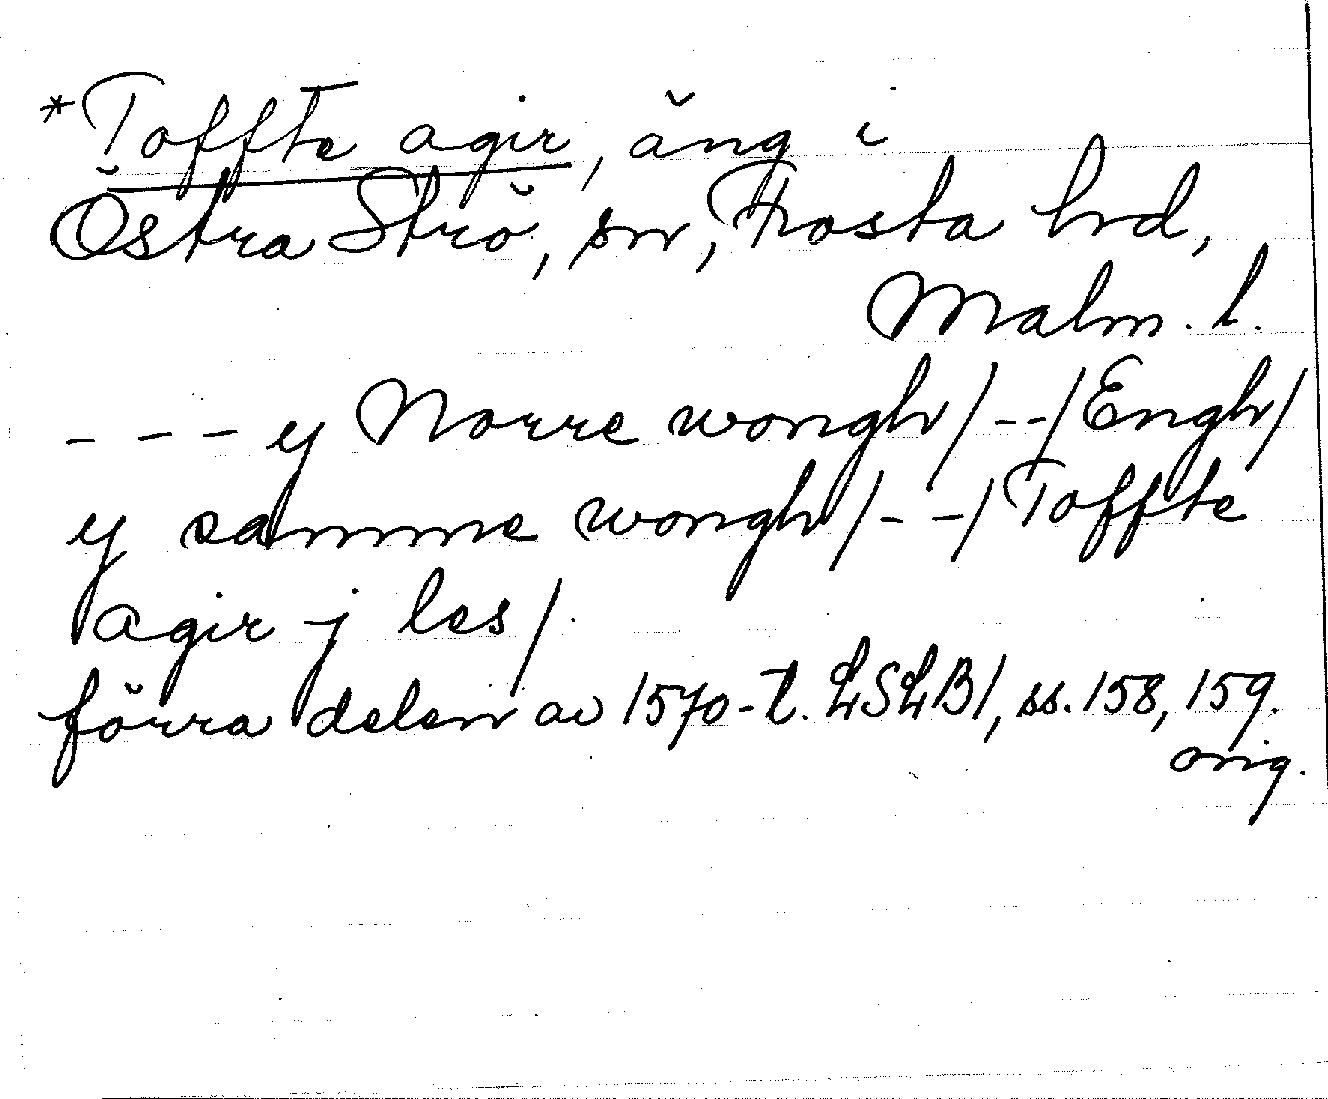 *Toffte agir, äng i
Östra Strö, sn, Frosta hd,
Malm. l.
- - - y Norre wongh/--/Engh/
y samme wongh/--/Toffte
agir j les/
förra delen av 1570-t. LSLB1, ss. 158, 159.
orig.